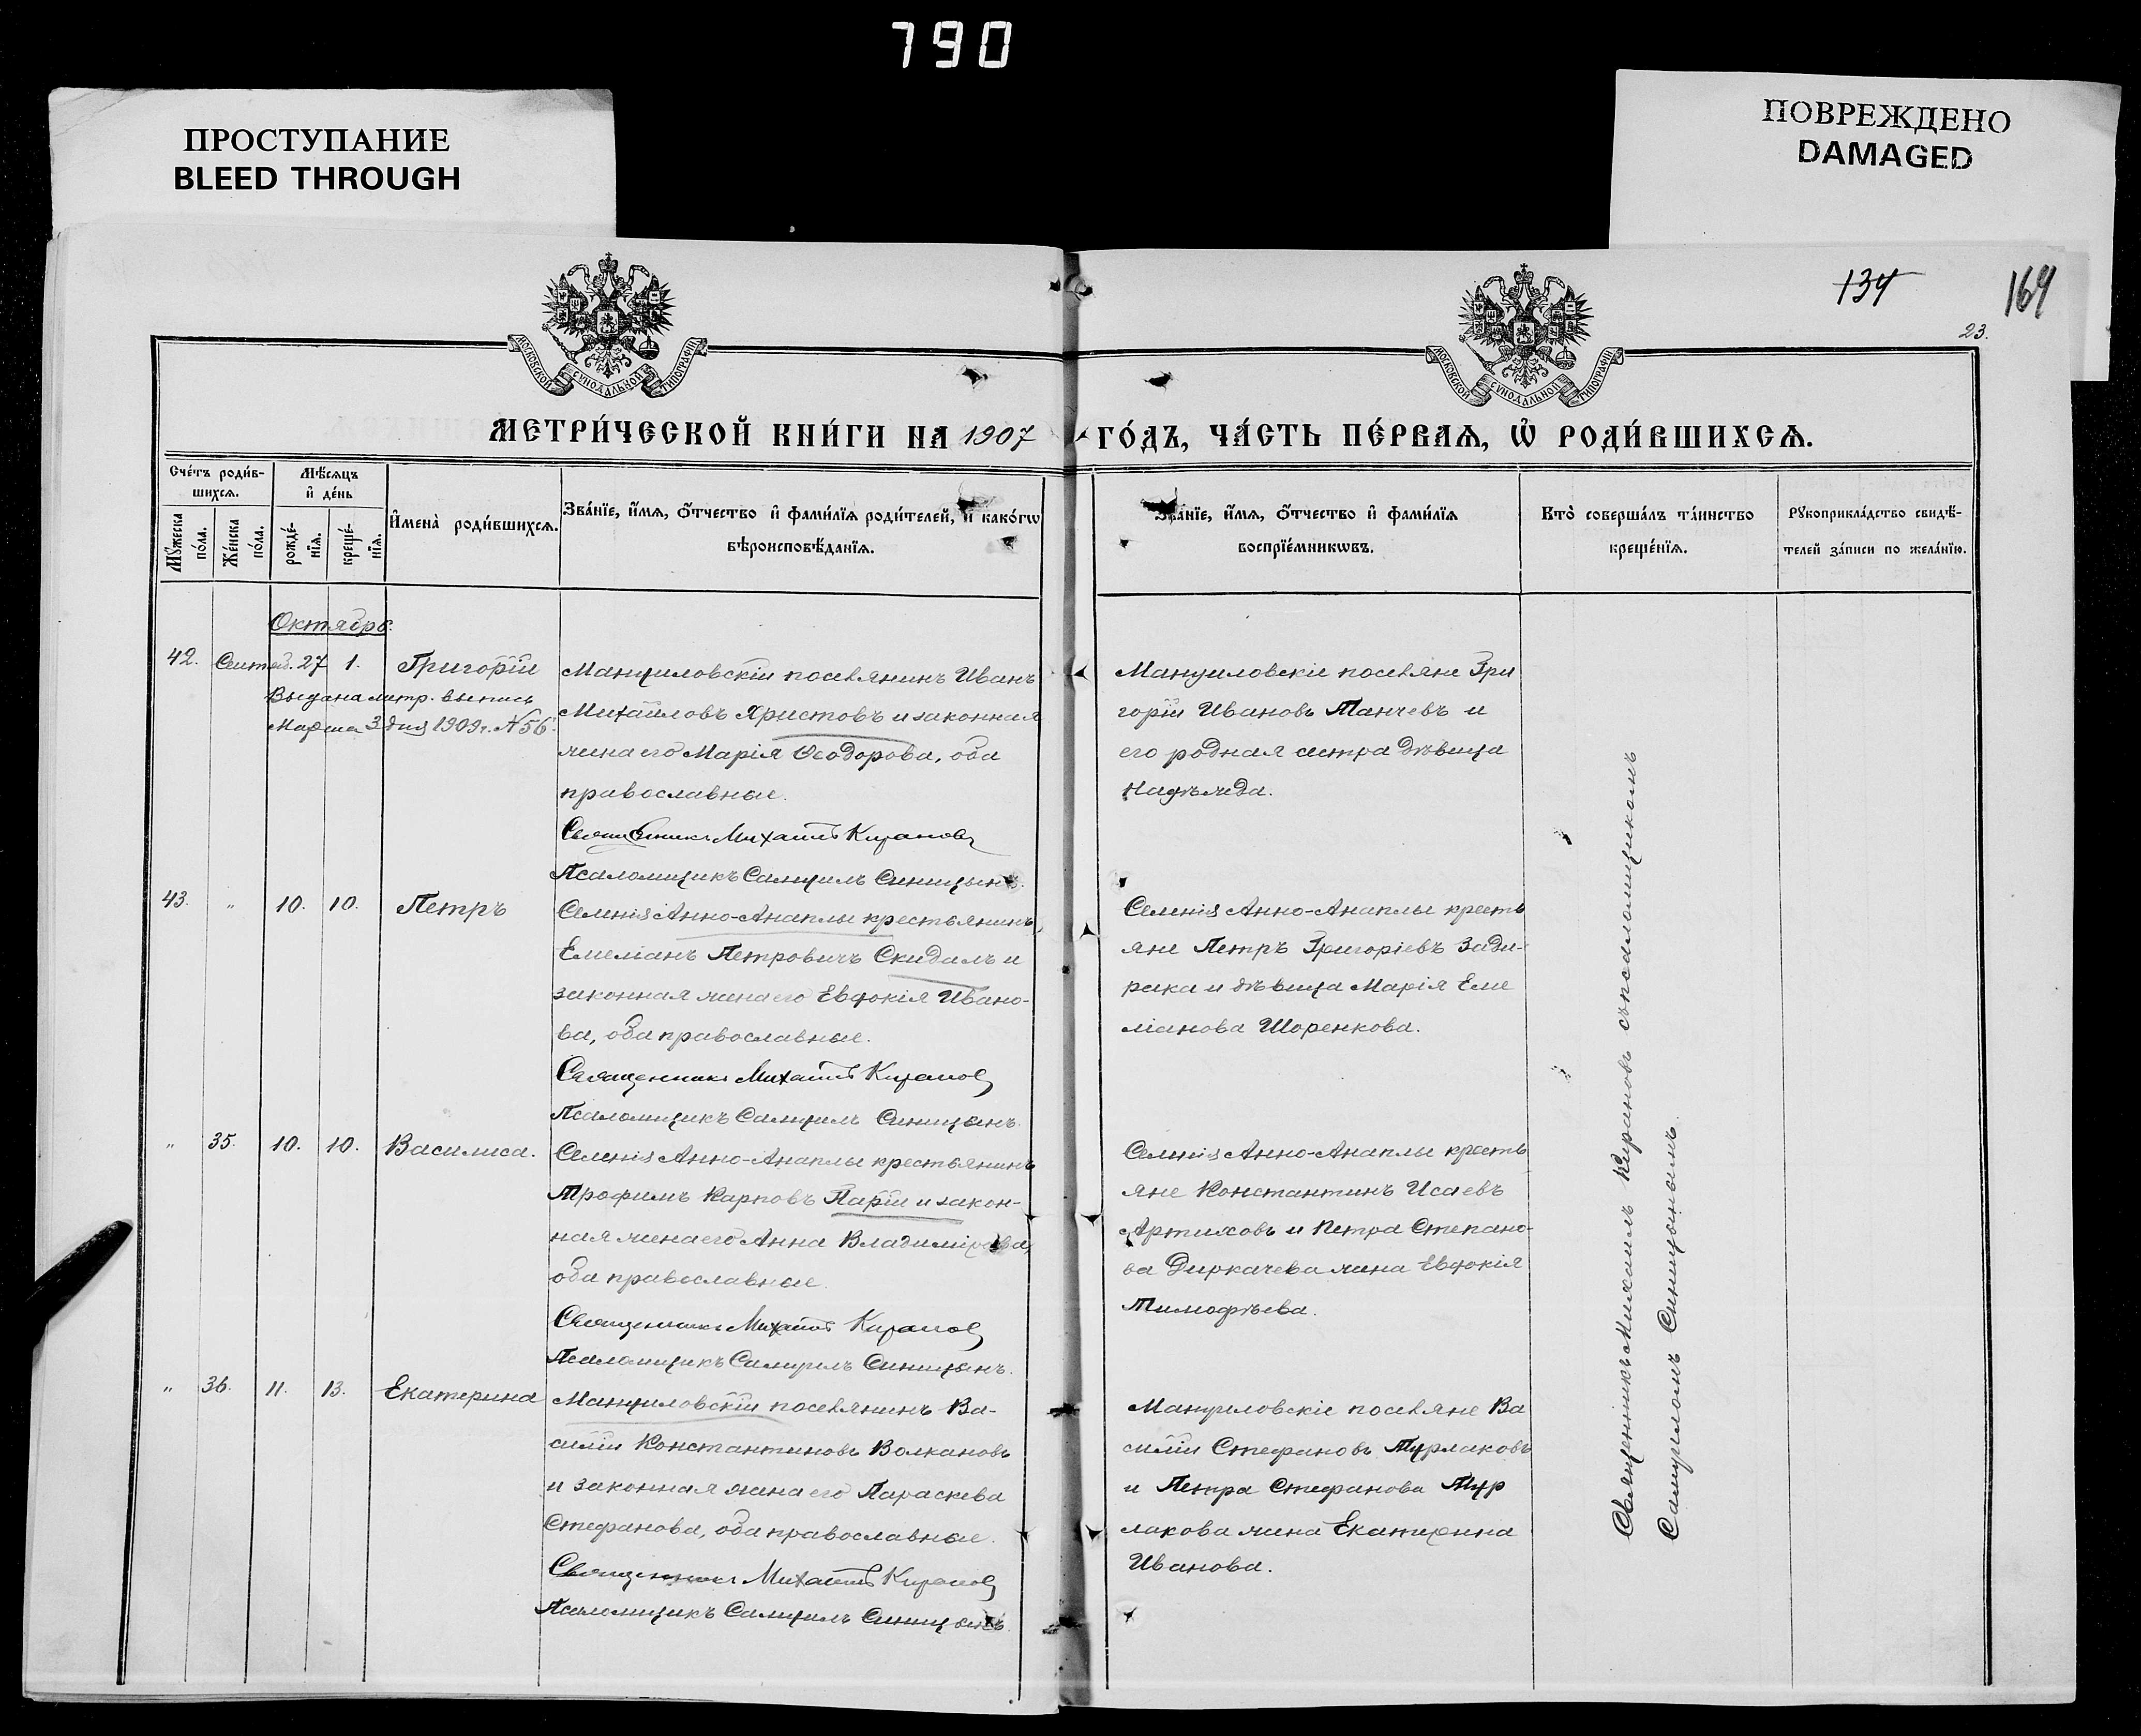 790
ПРОСТУПАНИЕ
BLEED THROUGH
ПОВРЕЖДЕНО
DAMAGED
134
169
23.
МОСКОВСКОЙ СѴНОДАЛЬНОЙ ТИПОГРАФІИ
МОСКОВСКОЙ СѴНОДАЛЬНОЙ ТИПОГРАФІИ
МЕТРИ́ЧЕСКОЙ КНИ́ГИ НА 1907 ГО́ДЪ, ЧА́СТЬ ПЕ́РВАѦ, Ѡ҆ РОДИ́ВШИХСѦ.
Сче́тъ роди́в-
шихсѧ.
Мѣ́сѧцъ
и҆ де́нь
Мꙋ́жеска
по́ла.
Же́нска
по́ла.
рожде́-
нїѧ.
креще́-
нїѧ.
И҆мена̀ роди́вшихсѧ.
Зва́нїе, и҆́мѧ, ѻ҆́тчество и҆ фами́лїѧ роди́телей, и҆ како́гѡ
вѣроисповѣ́данїѧ.
Зва́нїе, и҆́мѧ, ѻ҆́тчество и҆ фами́лїѧ
воспрїе́мникѡвъ.
Кто̀ соверша́лъ та́инство
креще́нїѧ.
Рꙋкоприкла́дство свидѣ́-
телей за́писи по жела́нїю.
Октябрь.
42. Сентяб. 27 1. Григорій
Выдана метр. выпись
Марта 3 дня 1909 г. № 56.
Мануиловскій поселянинъ Иванъ
Михайловъ Христовъ и законная
жена его Марія Ѳеодорова, оба
православные.
Священникъ Михаилъ Кирановъ
Псаломщикъ Самуилъ Синицынъ.
Мануиловскіе поселяне Гри
горій Ивановъ Танчевъ и
его родная сестра дѣвица
Надѣжда.
43. " 10. 10. Петръ
Селенія Анно-Анаплы крестьянинъ
Емеліанъ Петровичъ Скидалъ и
законная жена его Евдокія Ивано-
ва, оба православные.
Священникъ Михаилъ Кирановъ
Псаломщикъ Самуилъ Синицынъ.
Селенія Анно-Анаплы кресть
яне Петръ Григоріевъ Зади-
рака и дѣвица Марія Еме
ліанова Шоренкова.
" 35. 10. 10. Василиса.
Селенія Анно-Анаплы крестьянинъ
Трофимъ Карповъ Парій и закон-
ная жена его Анна Владимірова,
оба православные.
Священникъ Михаилъ Кирановъ
Псаломщикъ Самуилъ Синицынъ.
Селенія Анно-Анаплы кресть
яне Константинъ Исаевъ
Артиховъ и Петра Степано-
ва Диркачева жена Евдокія
Тимофѣева.
" 36. 11. 13. Екатерина
Мануиловскій поселянинъ Ва-
силій Константиновъ Волкановъ
и законная жена его Параскева
Стефанова, оба православные.
Священникъ Михаилъ Кирановъ
Псаломщикъ Самуилъ Синицынъ.
Мануиловскіе поселяне Ва
силій Стефановъ Турлаковъ
и Петра Стефанова Тур
лакова жена Екатерина
Иванова.
Священникъ Михаилъ Кирановъ съ псаломщикомъ
Самуиломъ Синицынымъ.